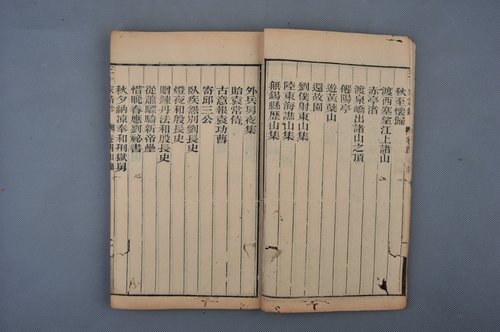 秋至懷歸
渡西塞望江上諸山
赤亭渚
渡泉嶠出諸山之頂
僊陽亭
遊黃蘗山
還故園
劉僕射東山集
陸東海譙山集
無錫縣歷山集
外兵舅夜集
貽袁常侍
古意報袁功曹
寄丘三公
臥疾怨別劉長史
燈夜和殷長史
贈鍊丹法和殷長史
從蕭驃騎新帝壘
惜晚春應劉祕書
秋夕納涼奉和刑獄舅